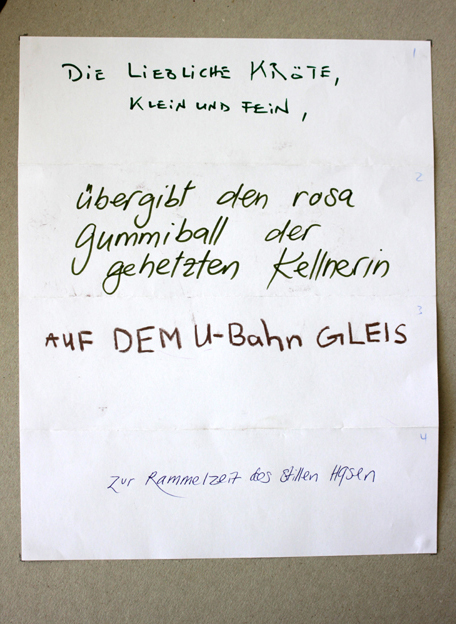 1
DIE LIEBLICHE KRÖTE,
KLEIN UND FEIN,
2
übergibt den rosa
Gummiball der
gehetzten Kellnerin
3
AUF DEM U-Bahn GLEIS
4
zur Rammelzeit des stillen Hasen